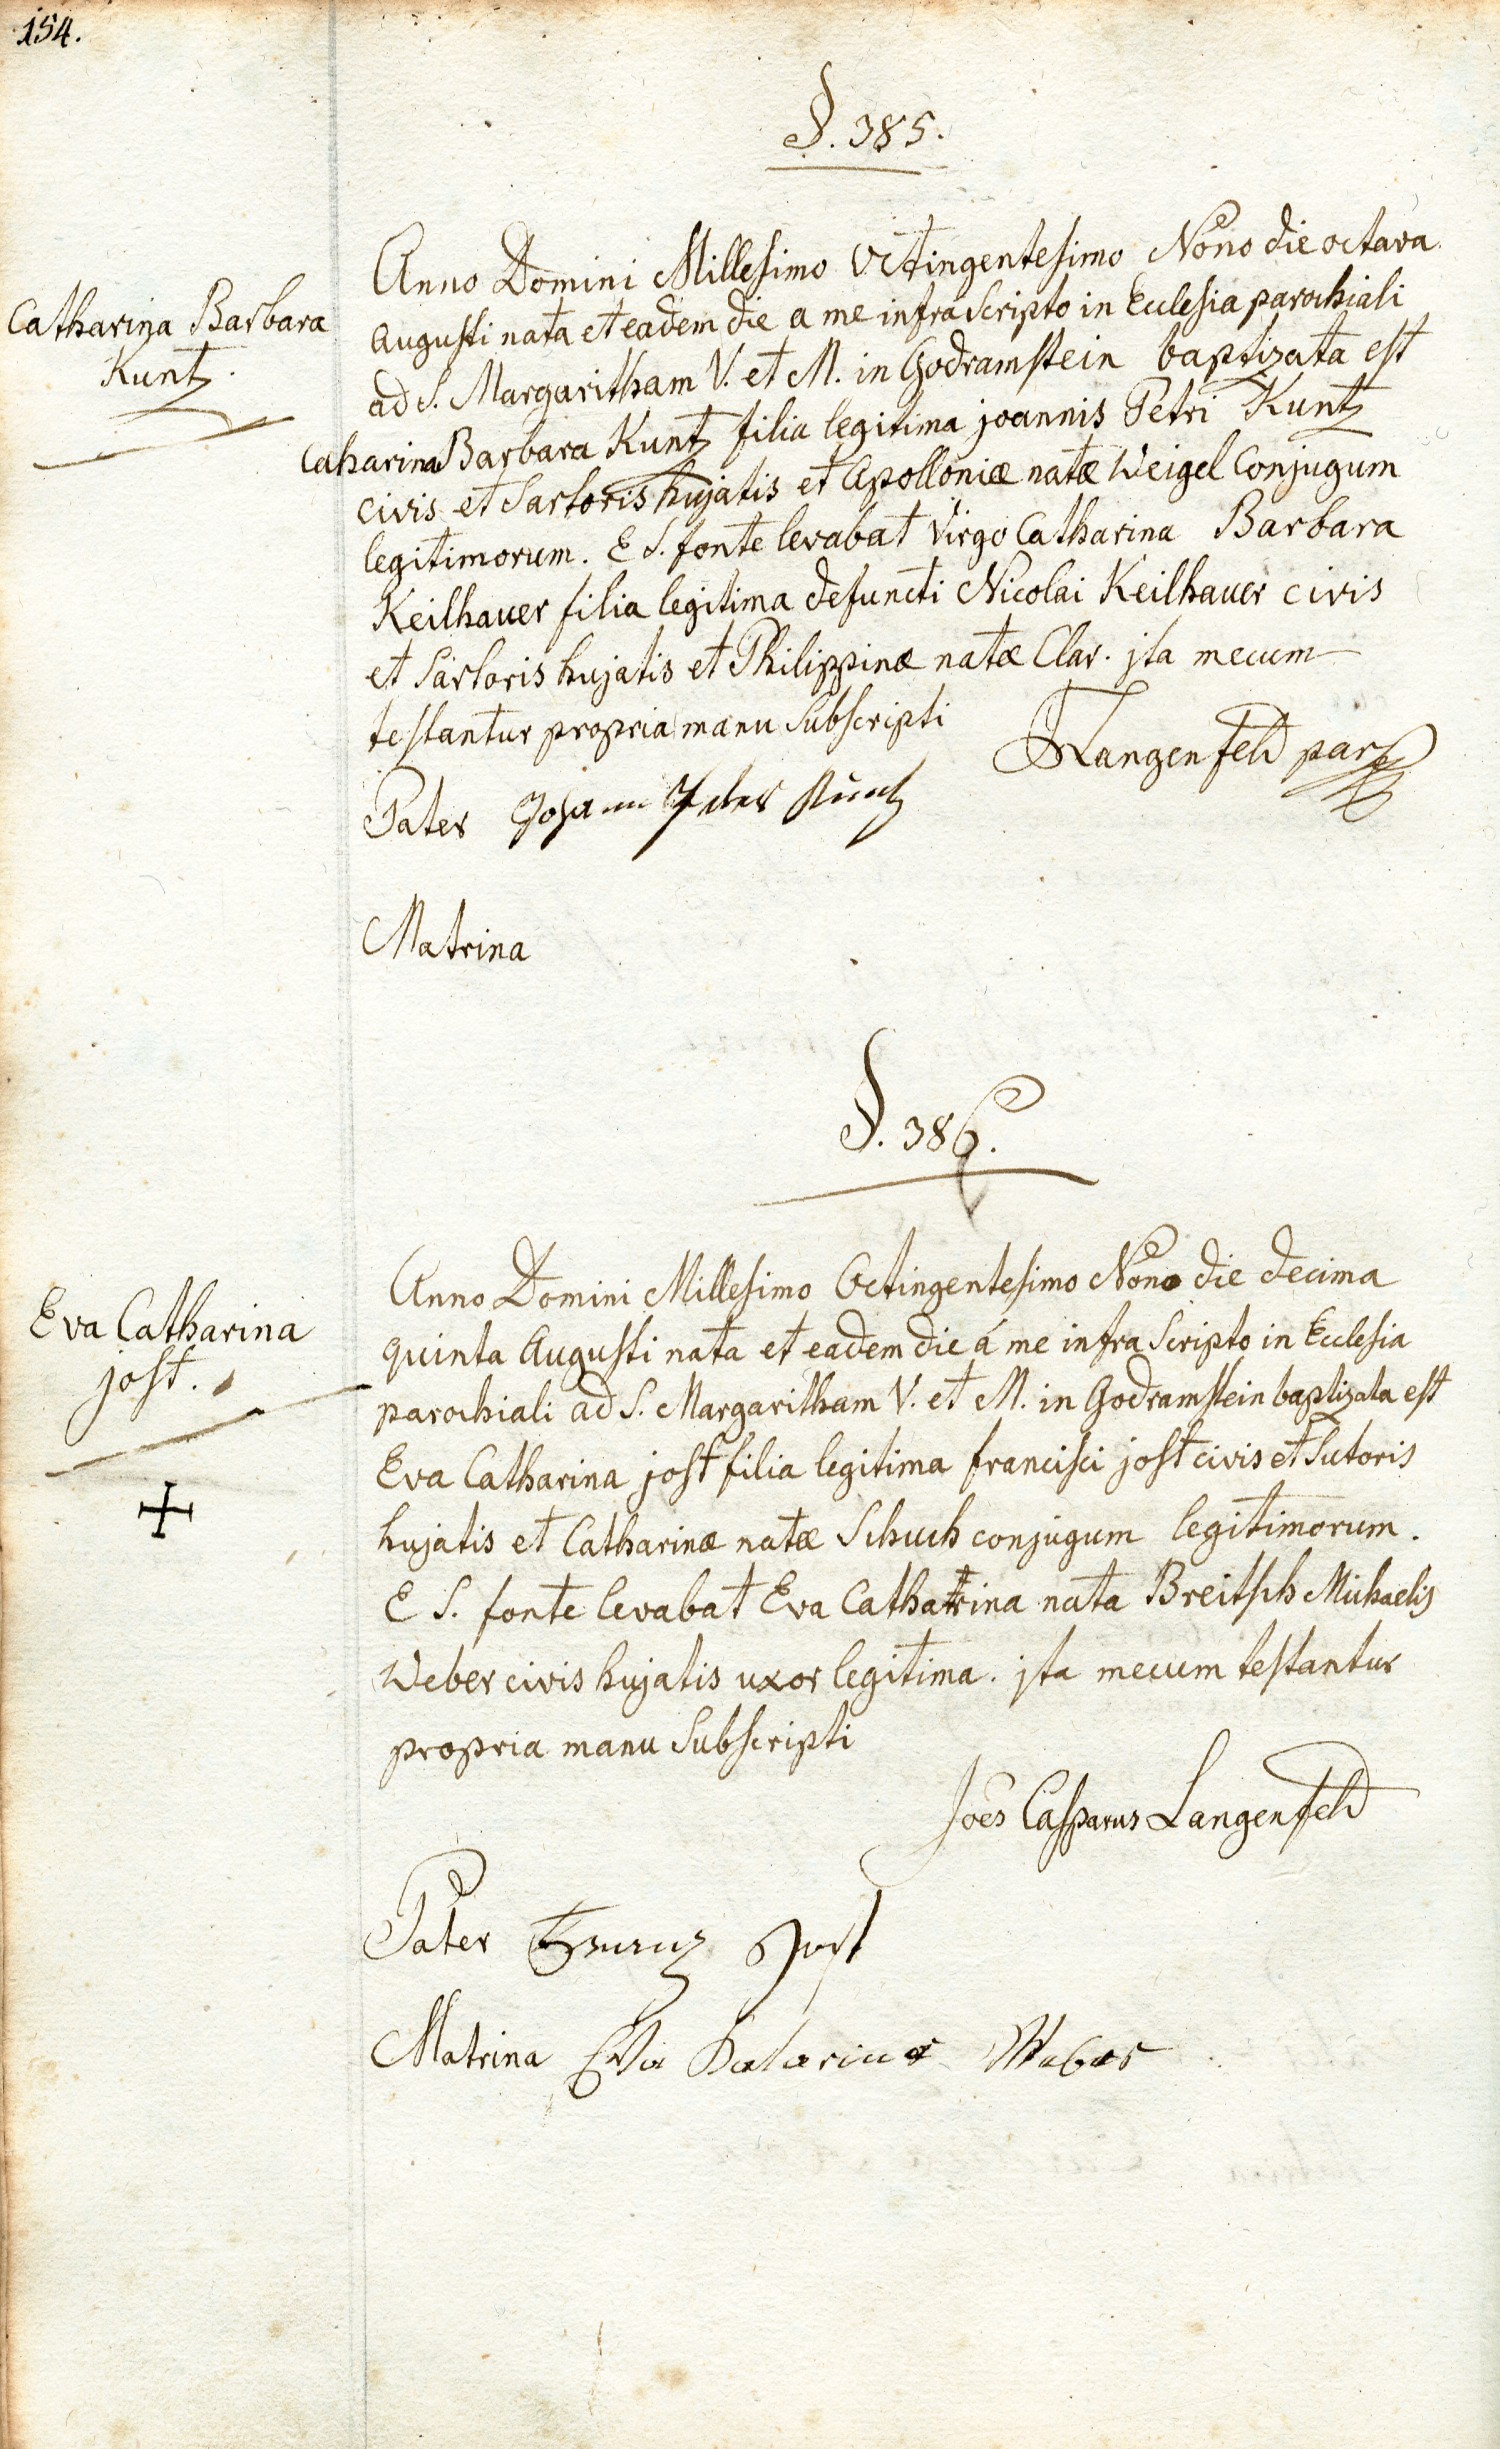 154.
§. 385.
Catharina Barbara
Kuntz.
Anno Domini Millesimo Octingentesimo Nono die octava
augusti nata et eadem die a me infra scripto in Ecclesia parochiali
ad S. Margaritham V. et M. in Godramstein baptizata est
Catharina Barbara Kuntz filia legitima joannis Petri Kuntz
civis et Sartoris hujatis et Apolloniæ natæ Weigel Conjugum
legitimorum. E S. fonte levabat Virgo Catharina Barbara
Keilhauer filia legitima defuncti Nicolai Keilhauer civis
et Sartoris hujatis et Philippinæ natæ Clar. jta mecum
testantur propria manu Subscripti
Langenfeld par
Pater Johann Peter Kuntz
Matrina
§. 386.
Eva Catharina
jost.
Anno Domini Millesimo Octingentesimo Nono die decima
quinta Augusti nata et eadem die á me infra scripto in Ecclesia
parochiali ad S. Margaritham V. et M. in Godramstein baptizata est
Eva Catharina jost filia legitima francisci jost civis et Sutoris
hujatis et Catharinæ natæ Schuch conjugum legitimorum.
E S. fonte levabat Eva Catharina nata Breitsch Michaelis
Weber civis hujatis uxor legitima. jta mecum testantur
propria manu Subscripti
Joēs Casparus Langenfeld
Pater Franz Jost
Matrina Eva Katarina Weber